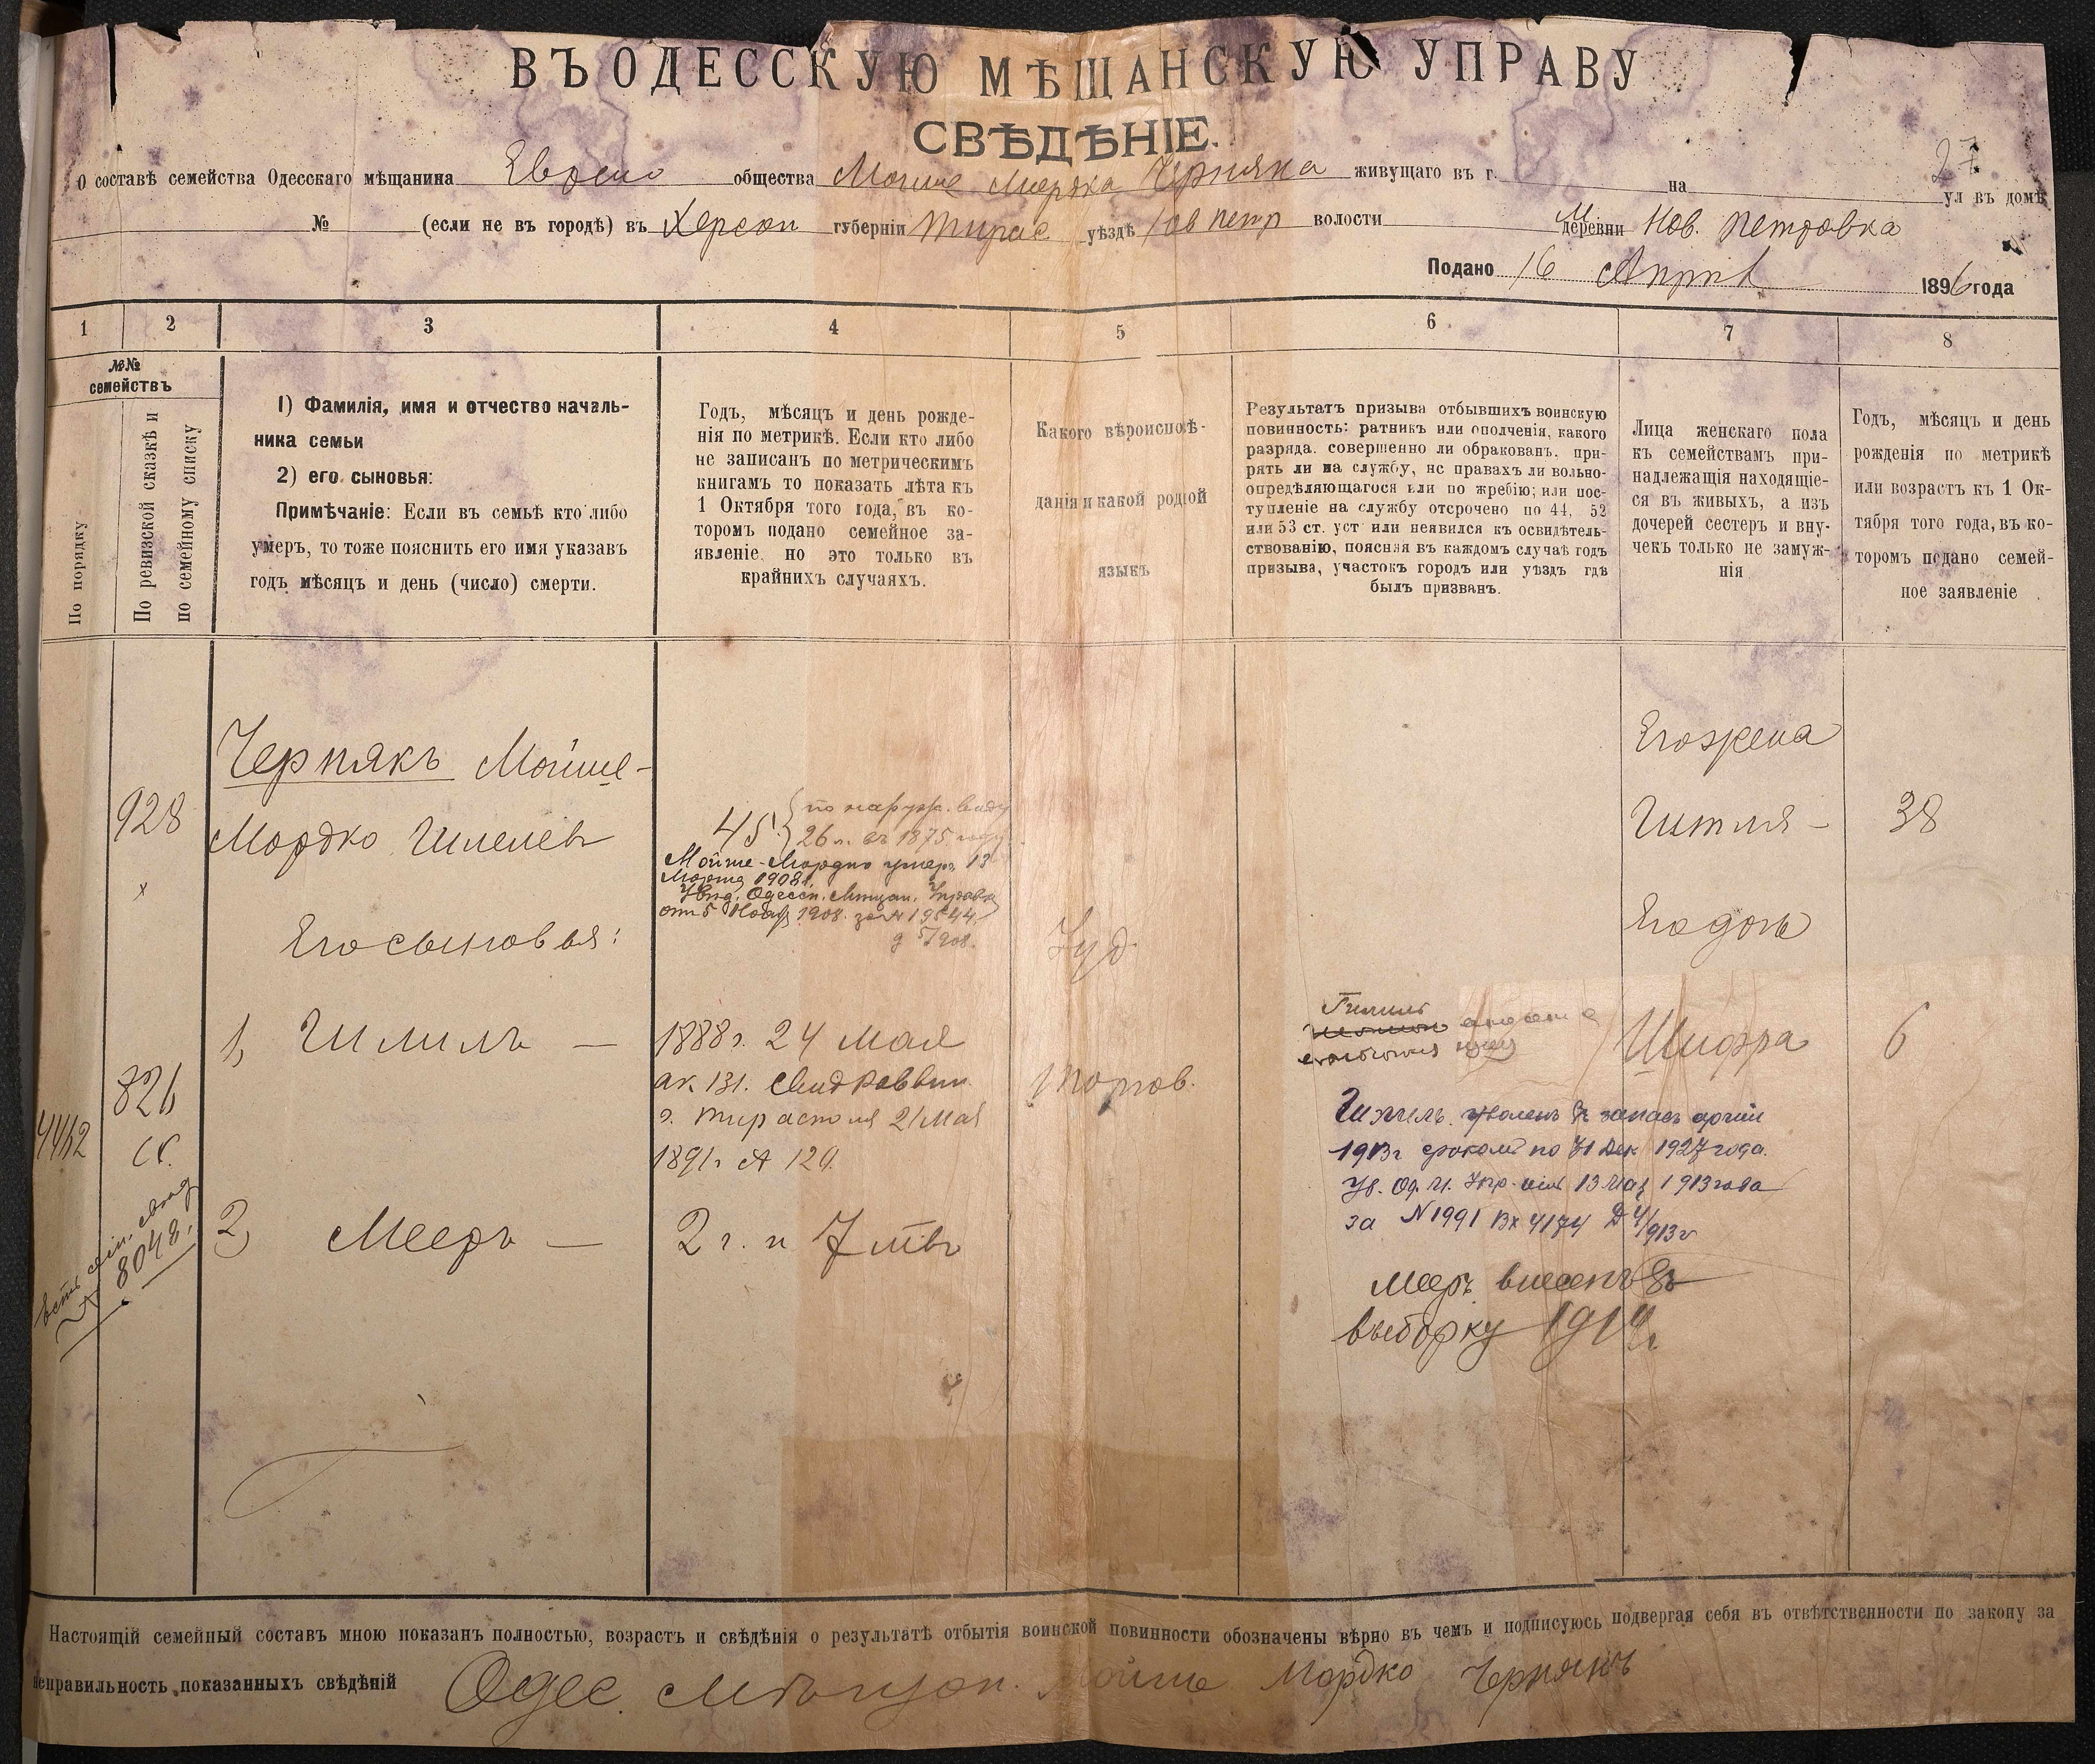 ВЪ ОДЕССКУЮ МѢЩАНСКУЮ УПРАВУ
СВѢДѢНІЕ.
27
О составѣ семейства Одесскаго мѣщанина общества Мойше Мордка Черняка живущаго въ г. на ул въ домѣ
№ (если не въ городѣ) въ Херсон губерніи Тирас уѣздѣ волости деревни Нов. Петровка
Подано 16 Апрѣл 1896 года
1 2 3 4 5 6 7 8
№№
семействъ
По порядку
По ревизской сказкѣ и
по семейному списку
1) Фамилія, имя и отчество началь-
ника семьи
2) его сыновья:
Примѣчаніе: Если въ семьѣ кто либо
умеръ, то тоже пояснить его имя указавъ
годъ мѣсяцъ и день (число) смерти.
Годъ, мѣсяцъ и день рожде-
нія по метрикѣ. Если кто либо
не записанъ по метрическимъ
книгамъ то показать лѣта къ
1 Октября того года, въ ко-
торомъ подано семейное за-
явленіе, но это только въ
крайнихъ случаяхъ.
Какого вѣроисповѣ-
данія и какой родной
языкъ
Результатъ призыва отбывшихъ воинскую
повинность: ратникъ или ополченія, какого
разряда. совершенно ли обракованъ. при-
нятъ ли на службу, нс правахъ ли вольно-
опредѣляющагося или по жребію; или пос-
тупленіе на службу отсрочено по 44, 52
или 53 ст. уст или неявился къ освидѣтель-
ствованію, поясняя въ каждомъ случаѣ годъ
призыва, участокъ городъ или уѣздъ гдѣ
былъ призванъ.
Лица женскаго пола
къ семействамъ при-
надлежащія находящіе-
ся въ живыхъ, а изъ
дочерей сестеръ и вну-
чекъ только не замуж-
нія
Годъ, мѣсяцъ и день
рожденія по метрикѣ
или возрастъ къ 1 Ок-
тября того года, въ ко-
торомъ подано семей-
ное заявленіе
Чернякъ Мойше-
Мордко Гилелев
928
х
45. по наружн. виду
26 л. въ 1875 году
Мойше-Мордко умеръ 13
Марта 1908 г.
Увѣд. Одесск. Мѣщан. Управы
от 5 Нояб 1908. за № 19544
Его жена
Гитля - 38
Его сыновья:
Іуд
Его дочь
1, Гилиль —
1888 г. 24 Мая
ак. 131. Свид Раввин
г. Тирасполя 21 Мая
1891 г № 129.
Гилиль
Шифра 6
821
4442
8048.
Гилиль уволенъ въ запасъ арміи
1913 г срокомъ по 31 Дек 1927 года.
Ув. Од. М. Упр. от 13 Мая 1913 года
за № 1991 Вх 4174 Д 4/913 г
2) Мееръ —
2 г. и 7 мѣс
Меер внесенъ въ
выборку 1914 г
Настоящій семейный составъ мною показанъ полностью, возрастъ и свѣдѣнія о результатѣ отбытія воинской повинности обозначены вѣрно въ чемъ и подписуюсь подвергая себя въ отвѣтственности по закону за
неправильность показанныхъ свѣдѣній Одес. Мѣщан. Мойше Мордко Чернякъ